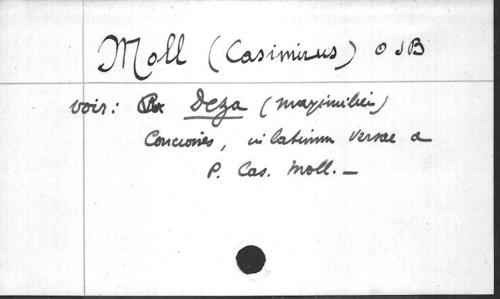 Moll (Casimirus) OSB
voir: Deza (Maximilien)
Conciones, in latinum versae a
P. Cas. Moll. —